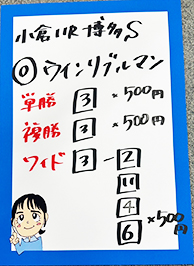 小倉11R 博多S
◎ウインリブルマン
単勝 3 ×500円
複勝 3 ×500円
ワイド 3 - 2
11
4
6 ×500円